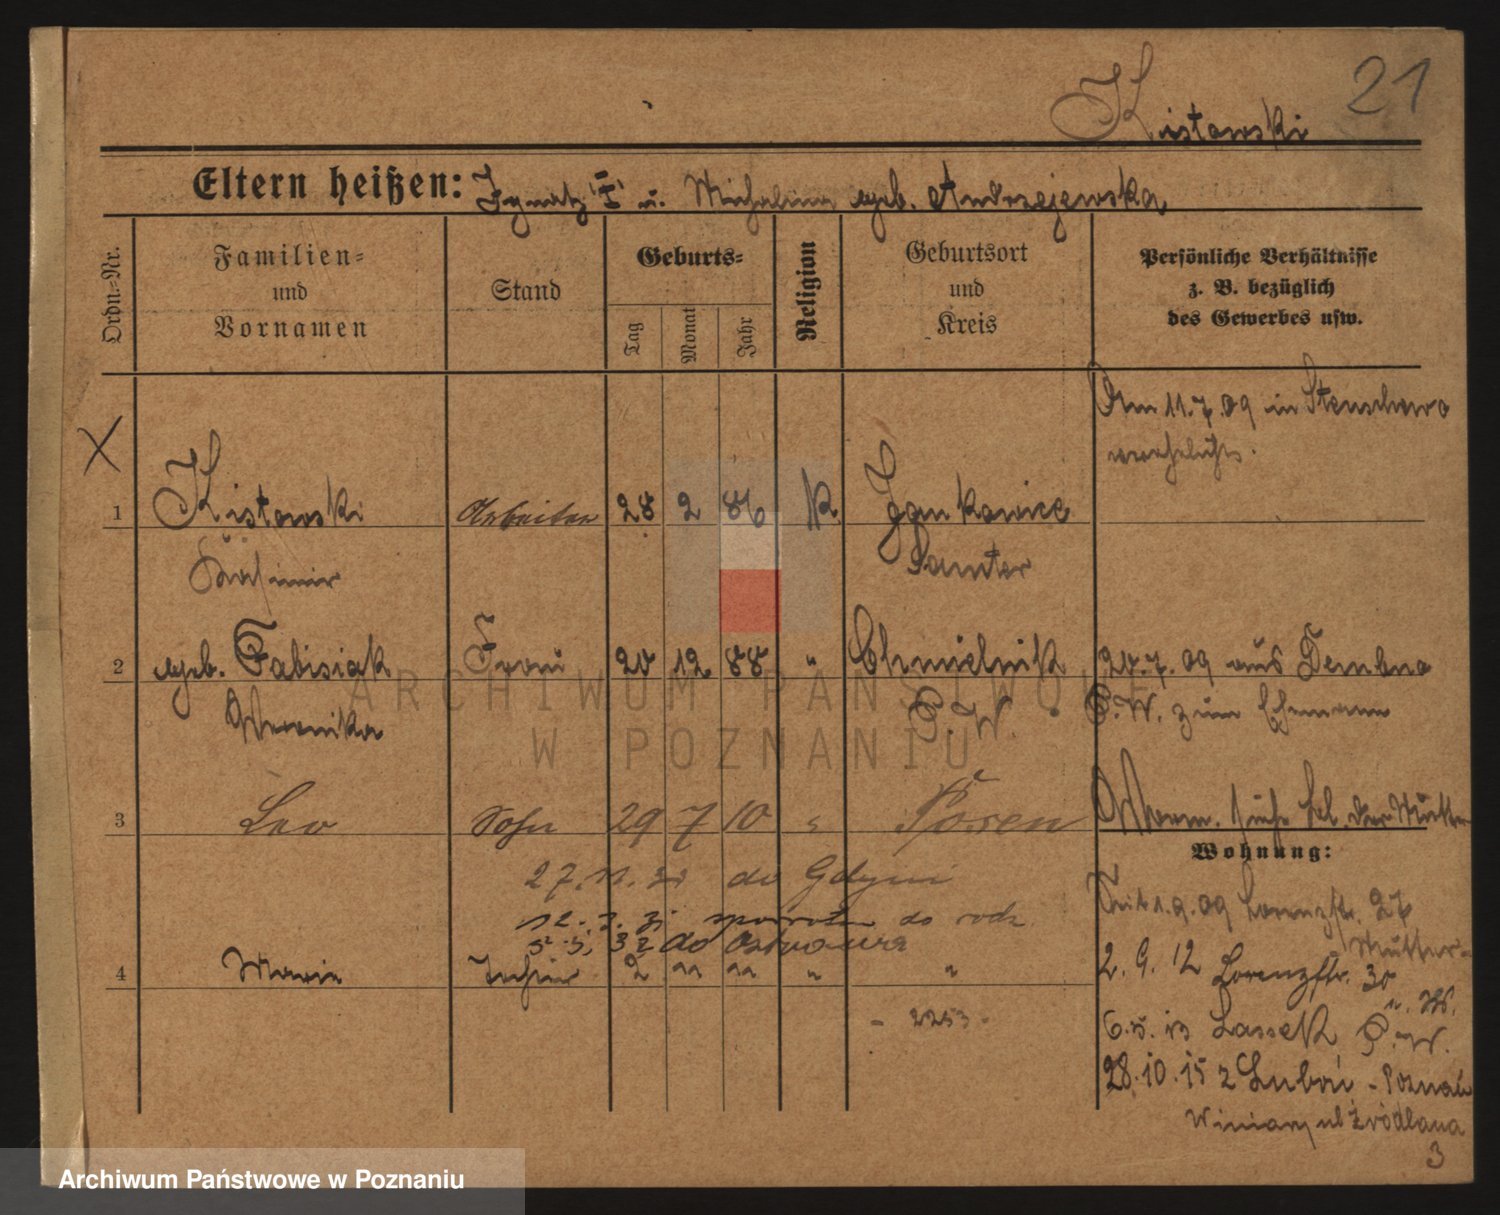 21
Kistowski
Eltern heißen: Ignatz "I" u. Michalina geb. Andrzejewska
Ordn.-Nr.
Familien-
und
Vornamen
Stand
Geburts-
Tag
Monat
Jahr
Religion
Geburtsort
und
Kreis
Persönliche Verhältnisse
z. B. bezüglich
des Gewerbes usw.
Am 11.7.09 in Stenschewo
verehelicht.
X
1 Kistowski Arbeiter 28 2 86 K
Kasimir Samter
2 geb. Fabisiak Frau 20 12 88 " Chmielnik 20.7.09 aus Dembno
Weronika P. W. P. W. zum Ehemann
3 Leo Sohn 29 7 10 " Posen
Wohnung:
27.11. do Gdyni
12.3.31 do rodz
5.5.32 do
4 Maria 2 11 11 " "
- 2253 -
1.9.09 Lorenzstr. 27
2.9.12 Lorenzstr. 30
6.5.13 Lassek P. W.
28.10.15 z Luboń - Poznań
Winiary ul Źródlana
3
ARCHIWUM PAŃSTWOWE
W POZNANIU
Archiwum Państwowe w Poznaniu